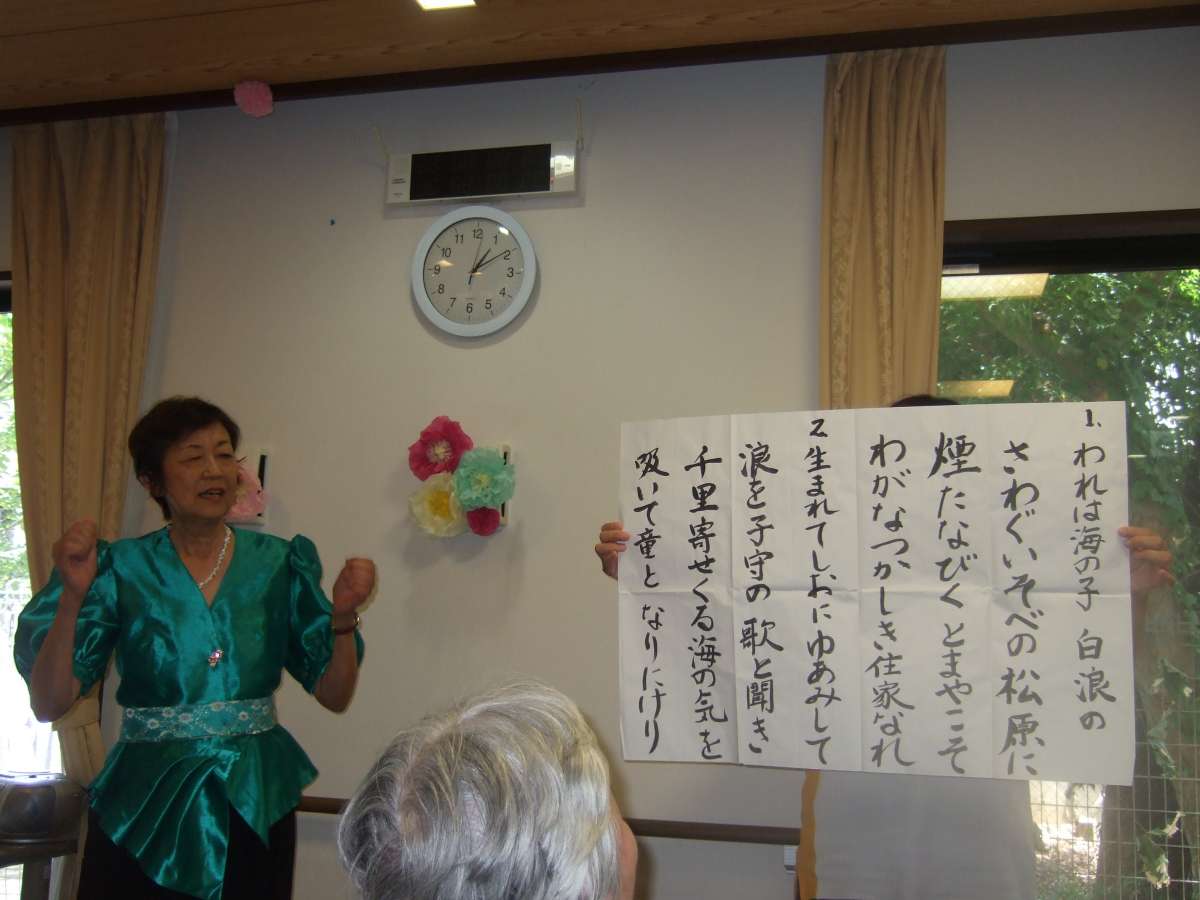 1. われは海の子 白浪の
さわぐいそべの松原に
煙たなびくとまやこそ
わがなつかしき住家なれ
2. 生まれてしおにゆあみして
浪を子守の歌と聞き
千里寄せくる海の気を
吸いて童となりにけり
12
1
2
3
4
5
6
7
8
9
10
11